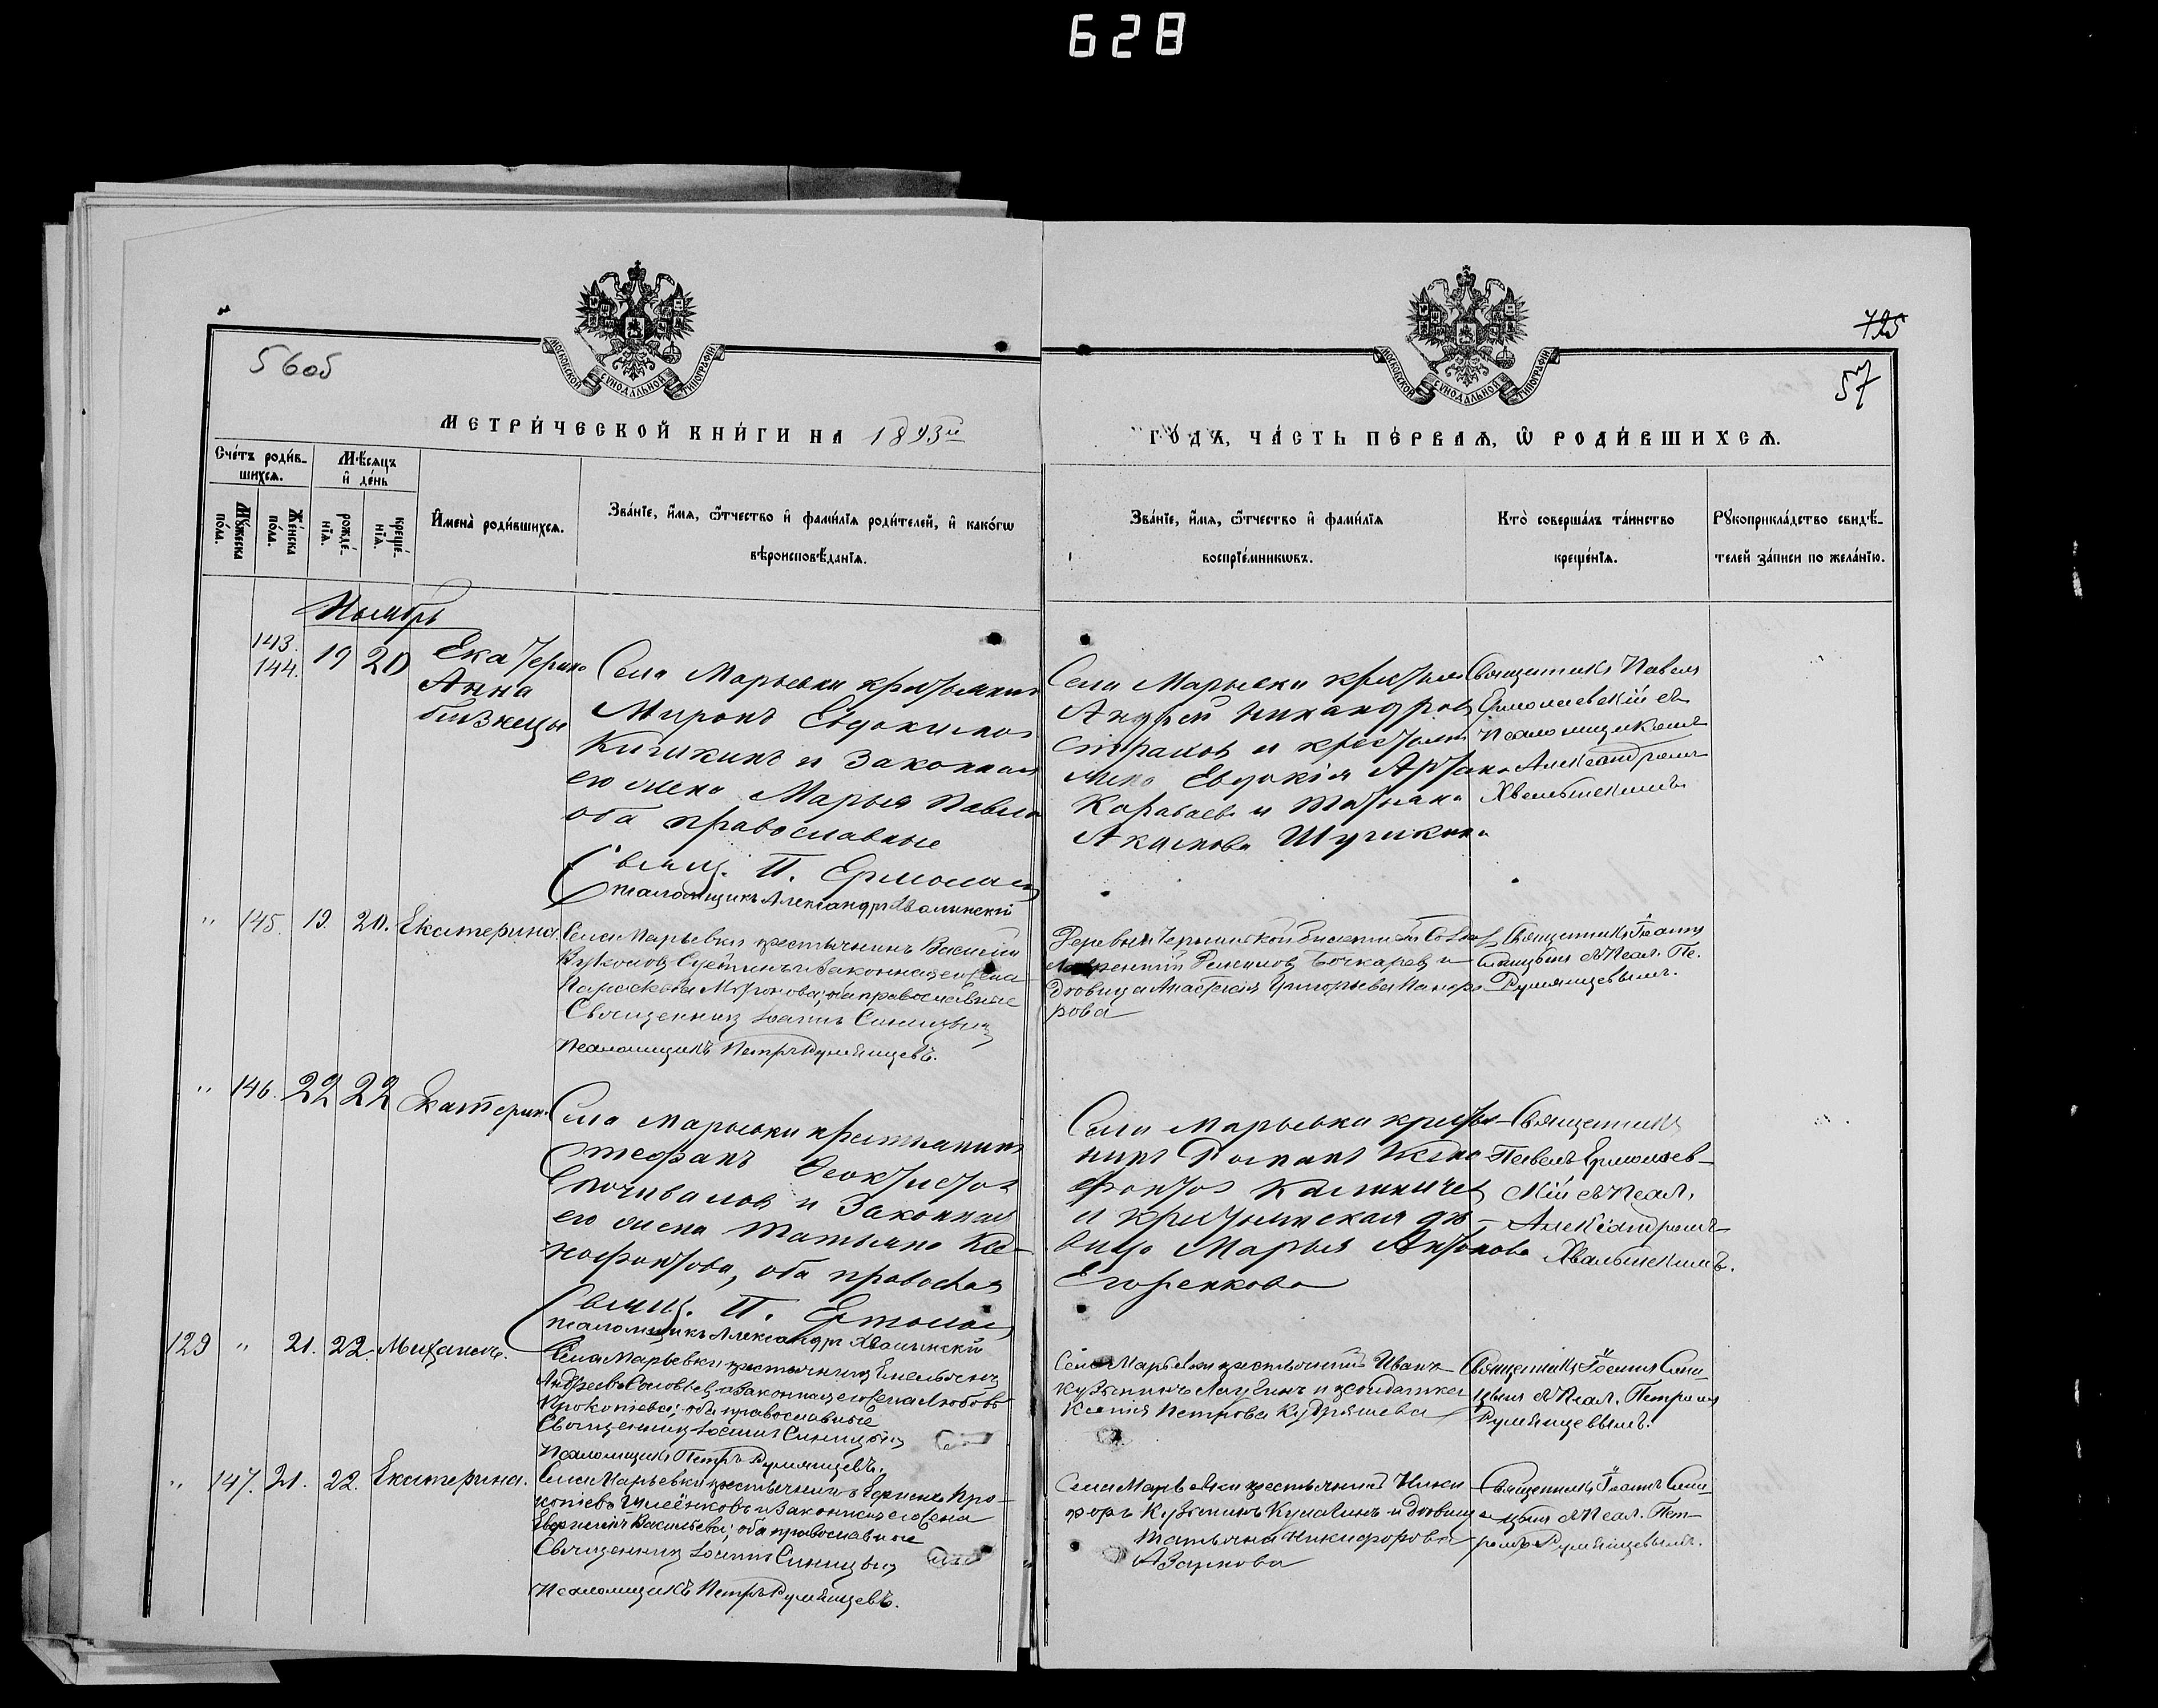 628
МОСКОВСКОЙ СѴНОДАЛЬНОЙ ТИПОГРАФІИ
МОСКОВСКОЙ СѴНОДАЛЬНОЙ ТИПОГРАФІИ
56об
725
57
МЕТРИ́ЧЕСКОЙ КНИ́ГИ НА 1893й
ГО́ДЪ, ЧА́СТЬ ПЕ́РВАѦ, Ѽ РОДИ́ВШИХСѦ.
Сче́тъ роди́в-
шихсѧ.
Мѣ́сѧцъ
и҆ де́нь
Мꙋ́жеска
по́ла.
Же́нска
по́ла.
рожде́-
нїѧ.
креще́-
нїѧ.
И҆мена̀ роди́вшихсѧ.
Зва́нїе, и҆́мѧ, ѻ҆́тчество и҆ фами́лїѧ роди́телей, и҆ како́гѡ
вѣроисповѣ́данїѧ.
Зва́нїе, и҆́мѧ, ѻ҆́тчество и҆ фами́лїѧ
воспрїе́мникѡвъ.
Кто̀ соверша́лъ та́инство
креще́нїѧ.
Рꙋкоприкла́дство свидѣ́-
телей за́писи по жела́нїю.
Ноябрь
143.
144. 19 20 Екатерина
Анна
близнецы
Села Марьевки крестьянинъ
Миронъ Евдокимов
Кичикинъ и законная
его жена Марья Павлов
оба православные
Свящ. П. Ермолаев
Псаломщикъ Александръ Хвалынскій
Села Марьевки крестьян
Андрей Никандров
Страхов и крестьян
Евдокія
и Татьяна
Акимова
Священникъ Павелъ
Ермолаевскій съ
псаломщикомъ
Александромъ
Хвалынскимъ
" 145. 19. 20. Екатерина.
Села Марьевки крестьянинъ Василій
и законная его жена
Параскева Миронова; оба православные
Священникъ Іоаннъ Синицынъ
Псаломщикъ Петръ Румянцевъ.
Деревни
Бочкаревъ и
дѣвица Анастасія Григорьева
рова
Священникъ Іоаннъ
Синицынъ съ псал. Пе.
Румянцевымъ.
" 146. 22 22 Екатерин.
Села Марьевки крестьянинъ
Стефанъ Феоктистов
и законная
его жена Татьяна Ксе-
нофонтова, оба правосла
Свящ. П. Ермолаев
Псаломщикъ Александръ Хвалынскій
Села Марьевки крестья-
нинъ Романъ Ксено
фонтов
и крестьянская дѣ-
вица Марья Антонова
Егоренкова
Священникъ
Павелъ Ермолаев-
скій съ псал.
Александромъ
Хвалынскимъ.
129 " 21. 22. Михаилъ.
Села Марьевки крестьянинъ Емельянъ
Андреевъ Соловьев и законная его жена Любовь
Прокопіева; оба православные
Священникъ Іоаннъ Синицынъ
Псаломщикъ Петръ Румянцевъ.
Села Марьевки крестьянинъ Иванъ
Кузьминъ и солдатка
Ксенія Петрова Кудряшева
Священникъ Іоаннъ Сини-
цынъ съ псал. Петромъ
Румянцевымъ.
" 147. 21. 22. Екатерина.
Села Марьевки крестьянинъ Про-
копіевъ и законная его жена
Васильева; оба православные
Священникъ Іоаннъ Синицынъ
Псаломщикъ Петръ Румянцевъ.
Села Марьевки крестьянинъ Ники
форъ Кузьминъ и дѣвица
Татьяна Никифорова
Азаркова
Священникъ Іоаннъ Сини-
цынъ съ псал. Пет-
ромъ Румянцевымъ.